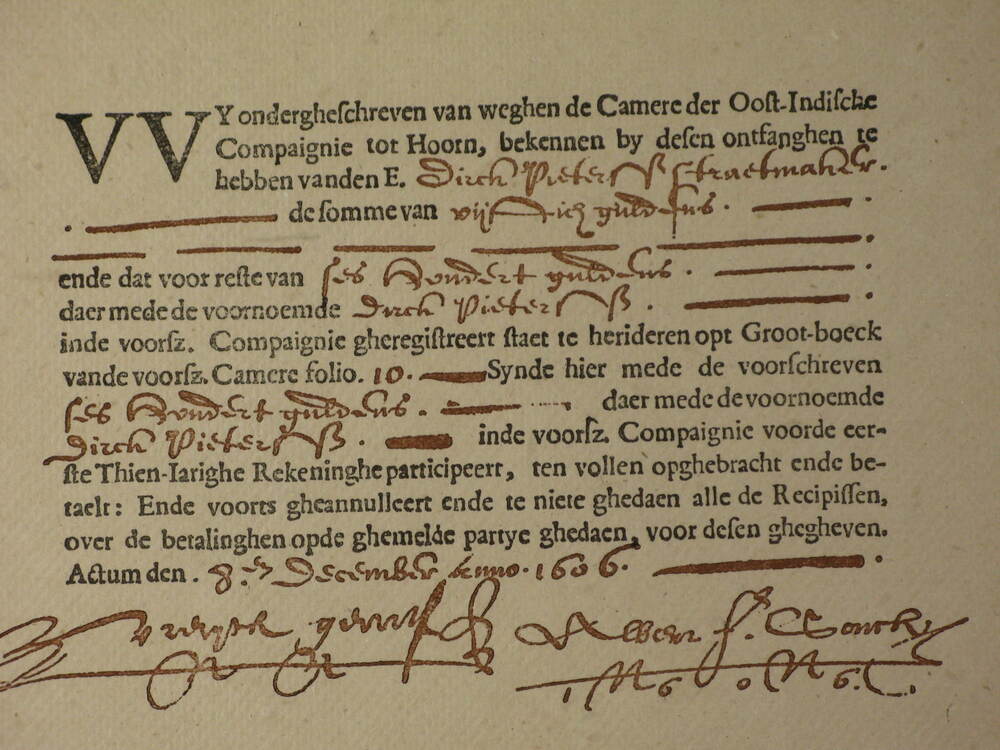 VVY ondergheſchreven van weghen de Camere der Ooſt-Indiſche
Compaignie tot Hoorn, bekennen by deſen ontfanghen te
hebben vanden E. Dirck Pieterſz ſtraetmaker.
de ſomme van vijftich guldens.
ende dat voor reſte van ſes hondert guldens.
daer mede de voornoemde Dirck Pieterſz.
inde voorſz. Compaignie gheregiſtreert ſtaet te herideren opt Groot-boeck
vande voorſz. Camere folio. 10. Synde hier mede de voorſchreven
ſes hondert guldens. daer mede de voornoemde
Dirck Pieterſz. inde voorſz. Compaignie voorde eer-
ſte Thien-Iarighe Rekeninghe participeert, ten vollen opghebracht ende be-
taelt: Ende voorts gheannulleert ende te niete ghedaen alle de Recipiſſen,
over de betalinghen opde ghemelde partye ghedaen, voor deſen ghegheven.
Actum den. 8.en December Anno. 1606.